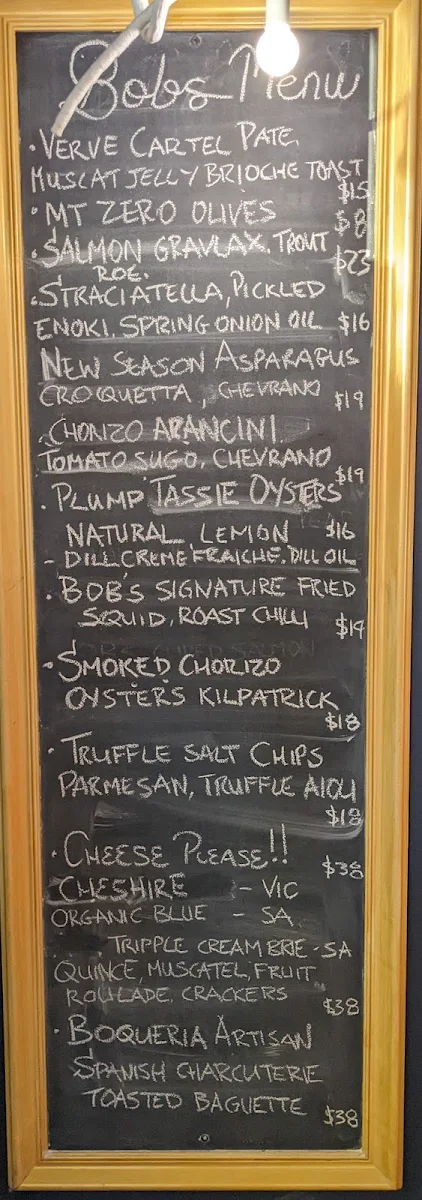 Bobs Menu
• VERVE CARTEL PATE,
MUSCAT JELLY BRIOCHE TOAST
$15
• MT ZERO OLIVES $8
• SALMON GRAVLAX, TROUT
ROE. $23
• STRACIATELLA, PICKLED
ENOKI, SPRING ONION OIL $16
NEW SEASON ASPARAGUS
CROQUETTA, CHEVRANO $19
CHORIZO ARANCINI.
TOMATO SUGO, CHEVRANO
$19
• PLUMP TASSIE OYSTERS
NATURAL, LEMON $16
- DILL CREME FRAICHE, DILL OIL
• BOB'S SIGNATURE FRIED
SQUID, ROAST CHILLI
$19
• SMOKED CHORIZO
OYSTERS KILPATRICK
$18
• TRUFFLE SALT CHIPS
PARMESAN, TRUFFLE AIOLI
$18
• CHEESE PLEASE!! $38
CHESHIRE - VIC
ORGANIC BLUE - SA
TRIPPLE CREAM BRIE - SA
QUINCE, MUSCATEL, FRUIT
ROULADE, CRACKERS
$38
• BOQUERIA ARTISAN
SPANISH CHARCUTERIE
TOASTED BAGUETTE
$38